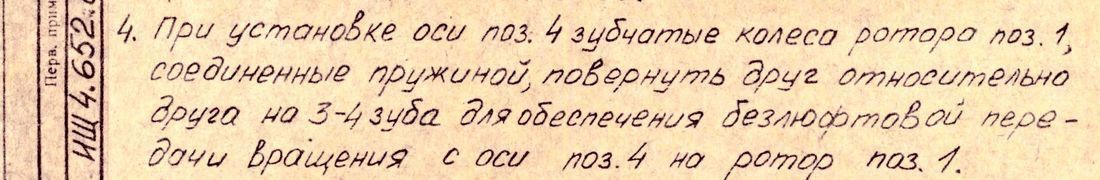 4. При установке оси поз. 4 зубчатые колеса ротора поз. 1,
соединенные пружиной, повернуть друг относительно
друга на 3-4 зуба для обеспечения безлюфтовой пере-
дачи вращения с оси поз. 4 на ротор поз. 1.
Перв. прим
ИЩ4.652.